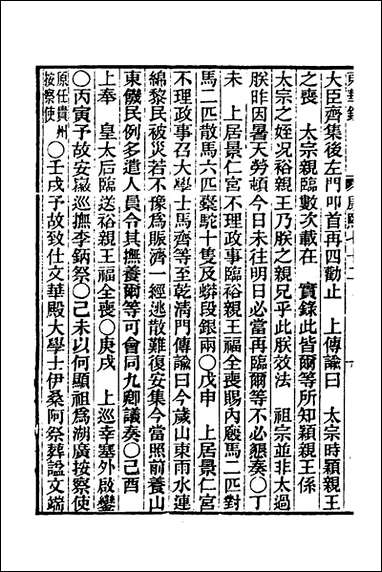 大臣齊集後左門叩首再四勸止　上傳諭曰　太宗時穎親王
之喪　太宗親臨數次載在　實錄此皆爾等所知穎親王係
太宗之姪况裕親王乃朕之親兄乎此朕效法　祖宗並非太過
朕昨因暑天勞頓今日未往明日必當再臨爾等不必懇奏〇丁
未　上居景仁宮不理政事臨裕親王福全喪賜內廄馬二匹對
馬二匹散馬六匹槖駝十隻及蟒段銀兩〇戊申　上居景仁宮
不理政事召大學士馬齊等至乾清門傳諭曰今歲山東雨水連
綿黎民被災若不豫為賑濟一經逃散難復安集今當照前養山
東饑民例多遣人員令其撫養爾等可會同九卿議奏〇己酉
上奉　皇太后臨送裕親王福全喪〇庚戌　上巡幸塞外啟鑾
〇丙寅予故安徽巡撫李鈵祭〇己未以何顯祖為湖廣按察使
原任貴州按察使〇壬戌予故致仕文華殿大學士伊桑阿祭葬諡文端